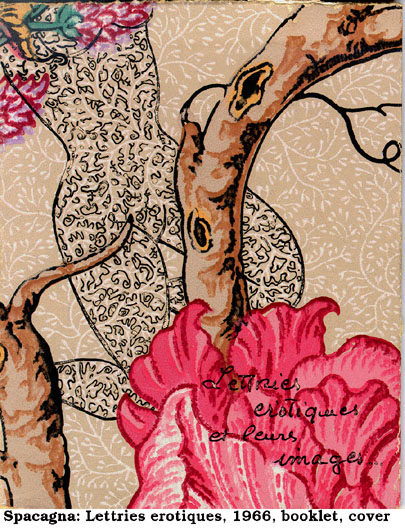 Lettries
erotiques
et leurs
images...
Spacagna: Lettries erotiques, 1966, booklet, cover